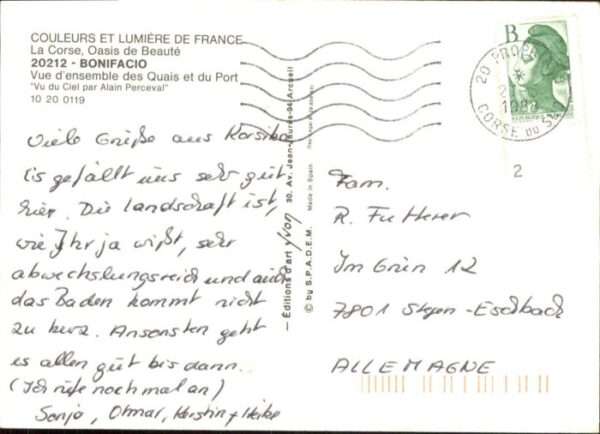 COULEURS ET LUMIÈRE DE FRANCE
La Corse, Oasis de Beauté
20212 - BONIFACIO
Vue d'ensemble des Quais et du Port
"Vu du Ciel par Alain Perceval"
10 20 0119
Viele Grüße aus Korsika
Es gefällt uns sehr gut
hier. Die Landschaft ist,
wie Ihr ja wißt, sehr
abwechslungsreich und auch
das Baden kommt nicht
zu kurz. Ansonsten geht
es allen gut bis dann.
(Ich rufe nochmal an)
Sonja, Otmar, Kerstin + Heike
— Éditions d'art yvon 30, Av. Jean-Jaurès-94 Arcueil
© by S.P.A.D.E.M. Made in Spain
B
20 PROPR
CORSE DU S
2
Fam.
R. Futterer
Im Grün 12
7801 Stegen-Eschbach
ALLEMAGNE